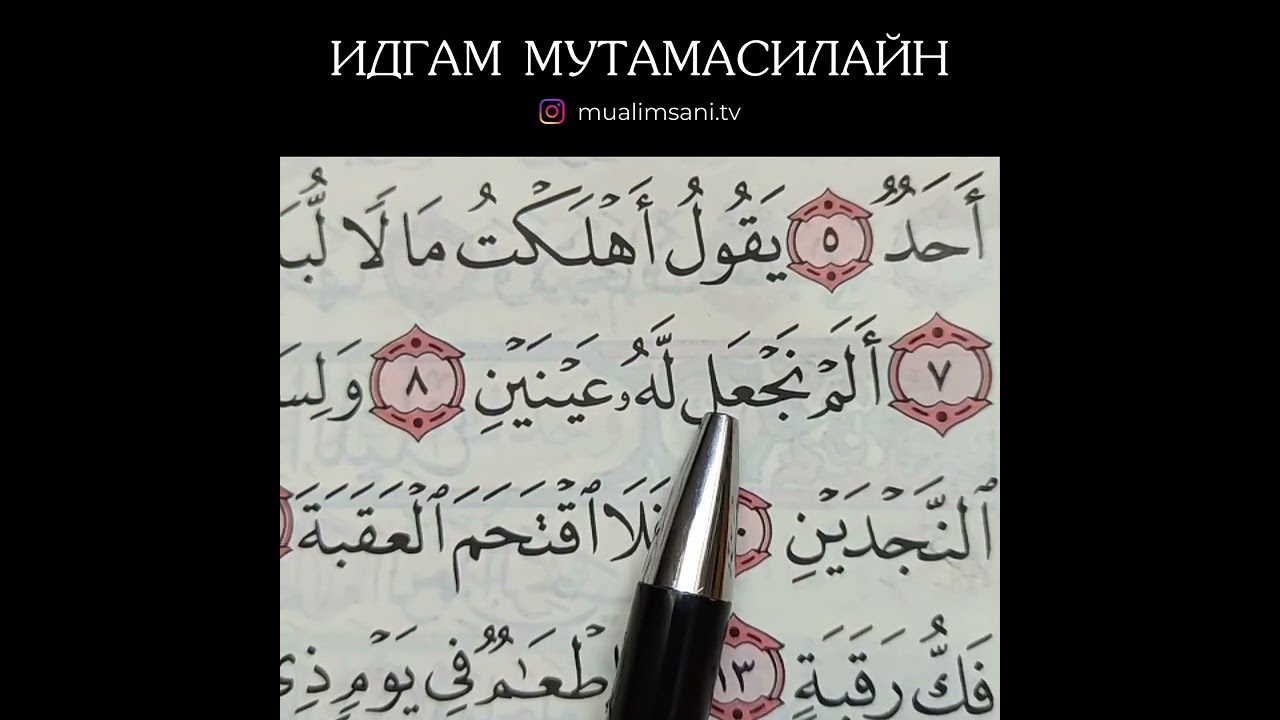 ИДГАМ МУТАМАСИЛАЙН
mualimsani.tv
أَحَدٌ ٥ يَقُولُ أَهْلَكْتُ مَالًا لُّبَ
٧ أَلَمْ نَجْعَل لَّهُۥ عَيْنَيْنِ ٨ وَلِسَ
ٱلنَّجْدَيْنِ فَلَا ٱقْتَحَمَ ٱلْعَقَبَةَ
فَكُّ رَقَبَةٍ ١٣ طْعَـٰمٌ فِى يَوْمٍ ذِى